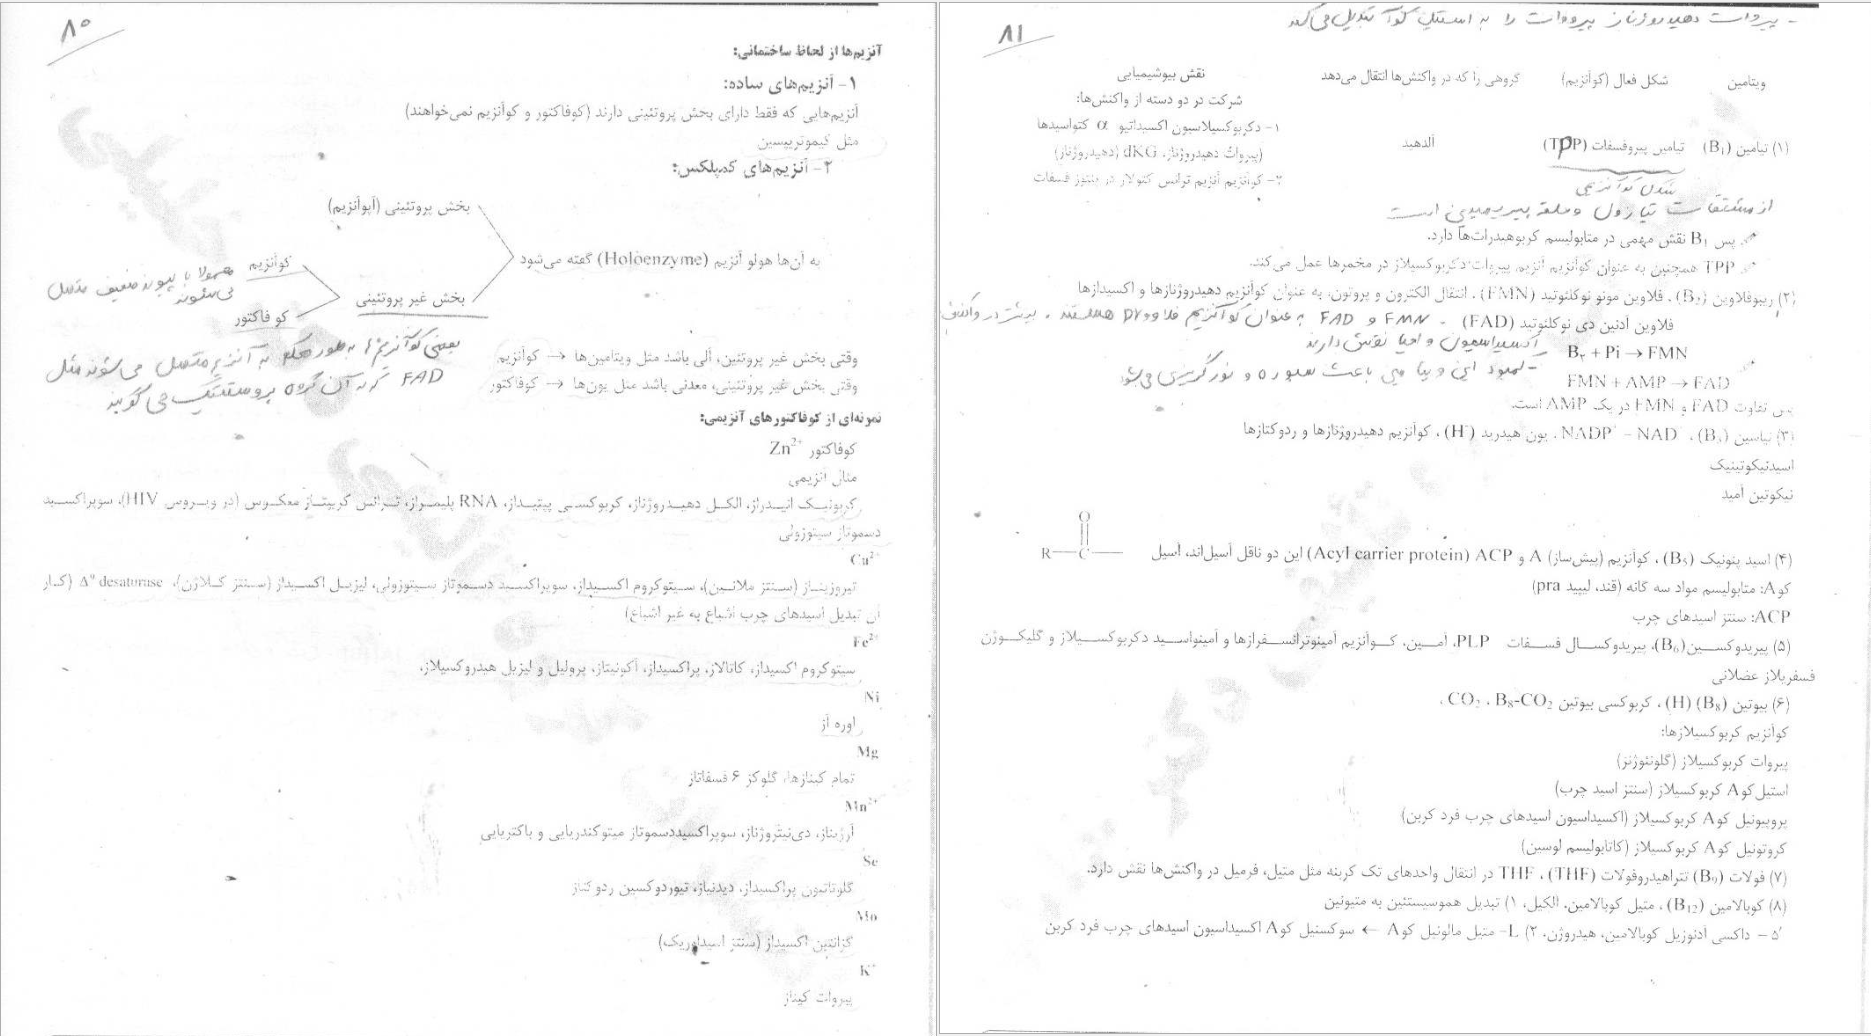 ۸۰
آنزیم‌ها از لحاظ ساختمانی:
۱- آنزیم‌های ساده:
آنزیم‌هایی که فقط دارای بخش پروتئینی دارند (کوفاکتور و کوآنزیم نمی‌خواهند)
مثل کیموتریپسین
۲- آنزیم‌های کمپلکس:
بخش پروتئینی (آپوآنزیم)
به آن‌ها هولو آنزیم (Holoenzyme) گفته می‌شود
بخش غیر پروتئینی
کوآنزیم معمولا با پیوند ضعیف متصل می‌شوند
کوفاکتور
وقتی بخش غیر پروتئین، آلی باشد مثل ویتامین‌ها → کوآنزیم
وقتی بخش غیر پروتئینی، معدنی باشد مثل یون‌ها → کوفاکتور
بعضی کوآنزیم‌ها به طور محکم به آنزیم متصل می‌شوند مثل
FAD که به آن گروه پروستتیک می‌گویند
نمونه‌ای از کوفاکتورهای آنزیمی:
کوفاکتور Zn²⁺
مثال آنزیمی
کربونیک انیدراز، الکل دهیدروژناز، کربوکسی پپتیداز، RNA پلیمراز، ترانس کریپتاز معکوس (در ویروس HIV)، سوپراکسید
دسموتاز سیتوزولی
Cu²⁺
تیروزیناز (سنتز ملانین)، سیتوکروم اکسیداز، سوپراکسید دسموتاز سیتوزولی، لیزیل اکسیداز (سنتز کلاژن)، Δ⁹ desaturase (کار
آن تبدیل اسیدهای چرب اشباع به غیر اشباع)
Fe²⁺
سیتوکروم اکسیداز، کاتالاز، پراکسیداز، آکونیتاز، پرولیل و لیزیل هیدروکسیلاز،
Ni
اوره آز
Mg
تمام کینازها، گلوکز ۶ فسفاتاز
Mn²⁺
آرژیناز، دی‌نیتروژناز، سوپراکسیددسموتاز میتوکندریایی و باکتریایی
Se
گلوتاتیون پراکسیداز، دیدنیاز، تیوردوکسین ردوکتاز
Mo
گزانتین اکسیداز (سنتز اسیداوریک)
K⁺
پیروات کیناز
- پیروات دهیدروژناز پیروات را به استیل کوآ تبدیل می‌کند
۸۱
ویتامین شکل فعال (کوآنزیم) گروهی را که در واکنش‌ها انتقال می‌دهد نقش بیوشیمیایی
شرکت در دو دسته از واکنش‌ها:
۱- دکربوکسیلاسیون اکسیداتیو α کتواسیدها
(۱) تیامین (B₁) تیامین پیروفسفات (TPP) آلدهید (پیروات دهیدروژناز، dKG (دهیدروژناز)
۲- کوآنزیم آنزیم ترانس کتولاز در پنتوز فسفات
شکل کوآنزیمی
از مشتقات تیازول و حلقه پیریمیدین است
پس B₁ نقش مهمی در متابولیسم کربوهیدرات‌ها دارد.
TPP همچنین به عنوان کوآنزیم آنزیم پیروات دکربوکسیلاز در مخمرها عمل می‌کند.
(۲) ریبوفلاوین (B₂)، فلاوین مونو نوکلئوتید (FMN)، انتقال الکترون و پروتون، به عنوان کوآنزیم دهیدروژنازها و اکسیدازها
فلاوین آدنین دی نوکلئوتید (FAD) - FMN و FAD به عنوان کوآنزیم هستند، بیشتر در واکنش
اکسیداسیون و احیا نقش دارند
B₂ + Pi → FMN
- کمبود این ویتامین باعث و نور گریزی می‌شود
FMN + AMP → FAD
پس تفاوت FAD و FMN در یک AMP است.
(۳) نیاسین (B₃)، NADP⁺ – NAD⁺، یون هیدرید (H⁻)، کوآنزیم دهیدروژنازها و ردوکتازها
اسیدنیکوتینیک
نیکوتین آمید
(۴) اسید پنتونیک (B₅)، کوآنزیم (پیش‌ساز) A و ACP (Acyl carrier protein) این دو ناقل آسیل‌اند، آسیل R—C— O
کوA: متابولیسم مواد سه گانه (قند، لیپید pra)
ACP: سنتز اسیدهای چرب
(۵) پیریدوکسین(B₆)، پیریدوکسال فسفات PLP، آمین، کوآنزیم آمینوترانسفرازها و آمینواسید دکربوکسیلاز و گلیکوژن
فسفریلاز عضلانی
(۶) بیوتین (B₈) (H)، کربوکسی بیوتین CO₂ ، B₈-CO₂،
کوآنزیم کربوکسیلازها:
پیروات کربوکسیلاز (گلونئوژنز)
استیل‌کوA کربوکسیلاز (سنتز اسید چرب)
پروپیونیل کوA کربوکسیلاز (اکسیداسیون اسیدهای چرب فرد کربن)
کروتونیل کوA کربوکسیلاز (کاتابولیسم لوسین)
(۷) فولات (B₉) تتراهیدروفولات (THF)، THF در انتقال واحدهای تک کربنه مثل متیل، فرمیل در واکنش‌ها نقش دارد.
(۸) کوبالامین (B₁₂)، متیل کوبالامین، الکیل، ۱) تبدیل هموسیستئین به متیونین
۵′- داکسی آدنوزیل کوبالامین، هیدروژن، ۲) L- متیل مالونیل کوA ← سوکسنیل کوA اکسیداسیون اسیدهای چرب فرد کربن